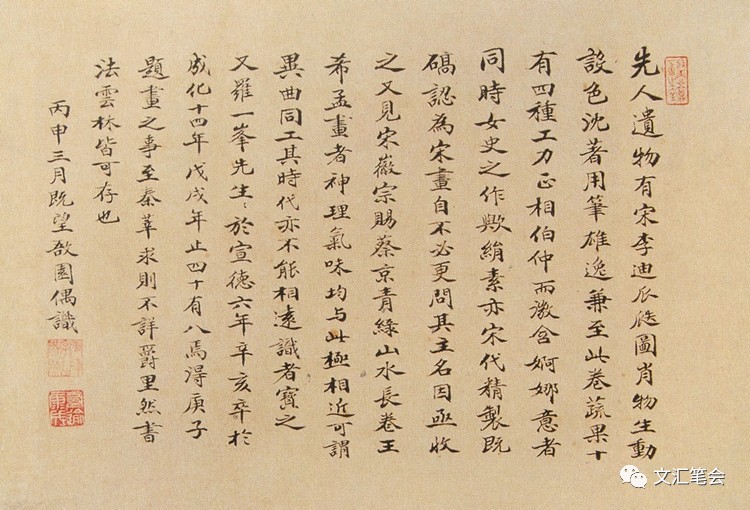 先人遺物有宋李迪瓜瓞圖肖物生動
設色沈著用筆雄逸兼至此卷蔬果十
有四種工力正相伯仲而激含婀娜意者
同時女史之作歟絹素亦宋代精製既
碻認為宋畫自不必更問其主名因亟收
之又見宋徽宗賜蔡京青綠山水長卷王
希孟畫者神理氣味均与此極相近可謂
異曲同工其時代亦不能相遠識者寶之
又羅一峯先生〻於宣德六年辛亥卒於
成化十四年戊戌年止四十有八焉得庚子
題畫之事至秦莘求則不詳爵里然書
法雲林皆可存也
丙申三月既望敔園偶識
文汇笔会